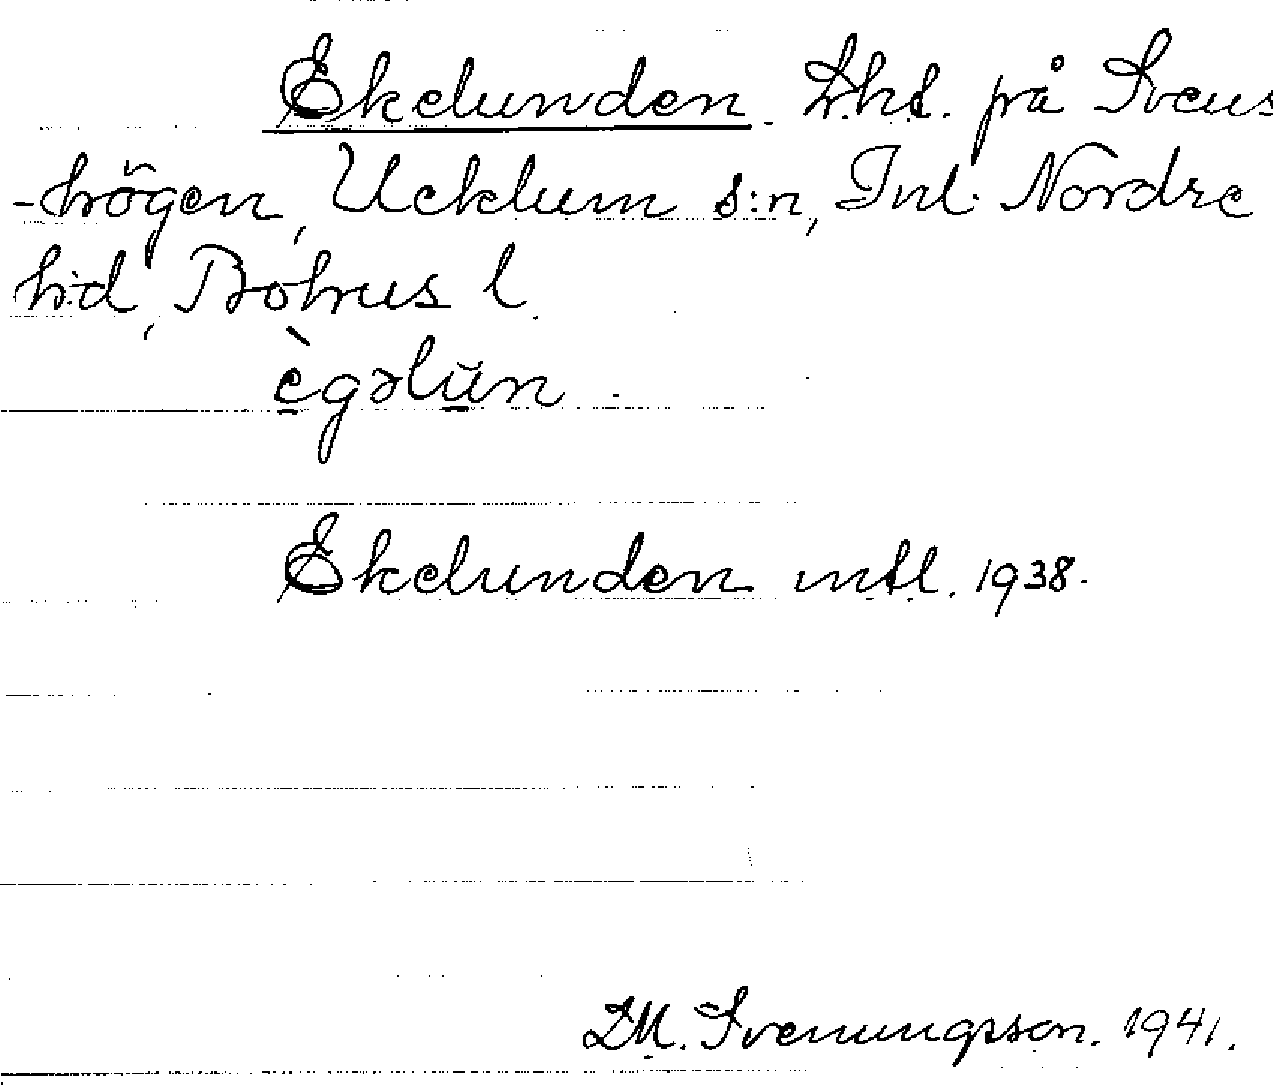 Ekelunden. Lht. på Svens
-högen, Ucklum s:n, Inl. Nordre
hd, Bohus l.
ègəlŭn.
Ekelunden mtl. 1938.
D.M. Svenungsson. 1941.